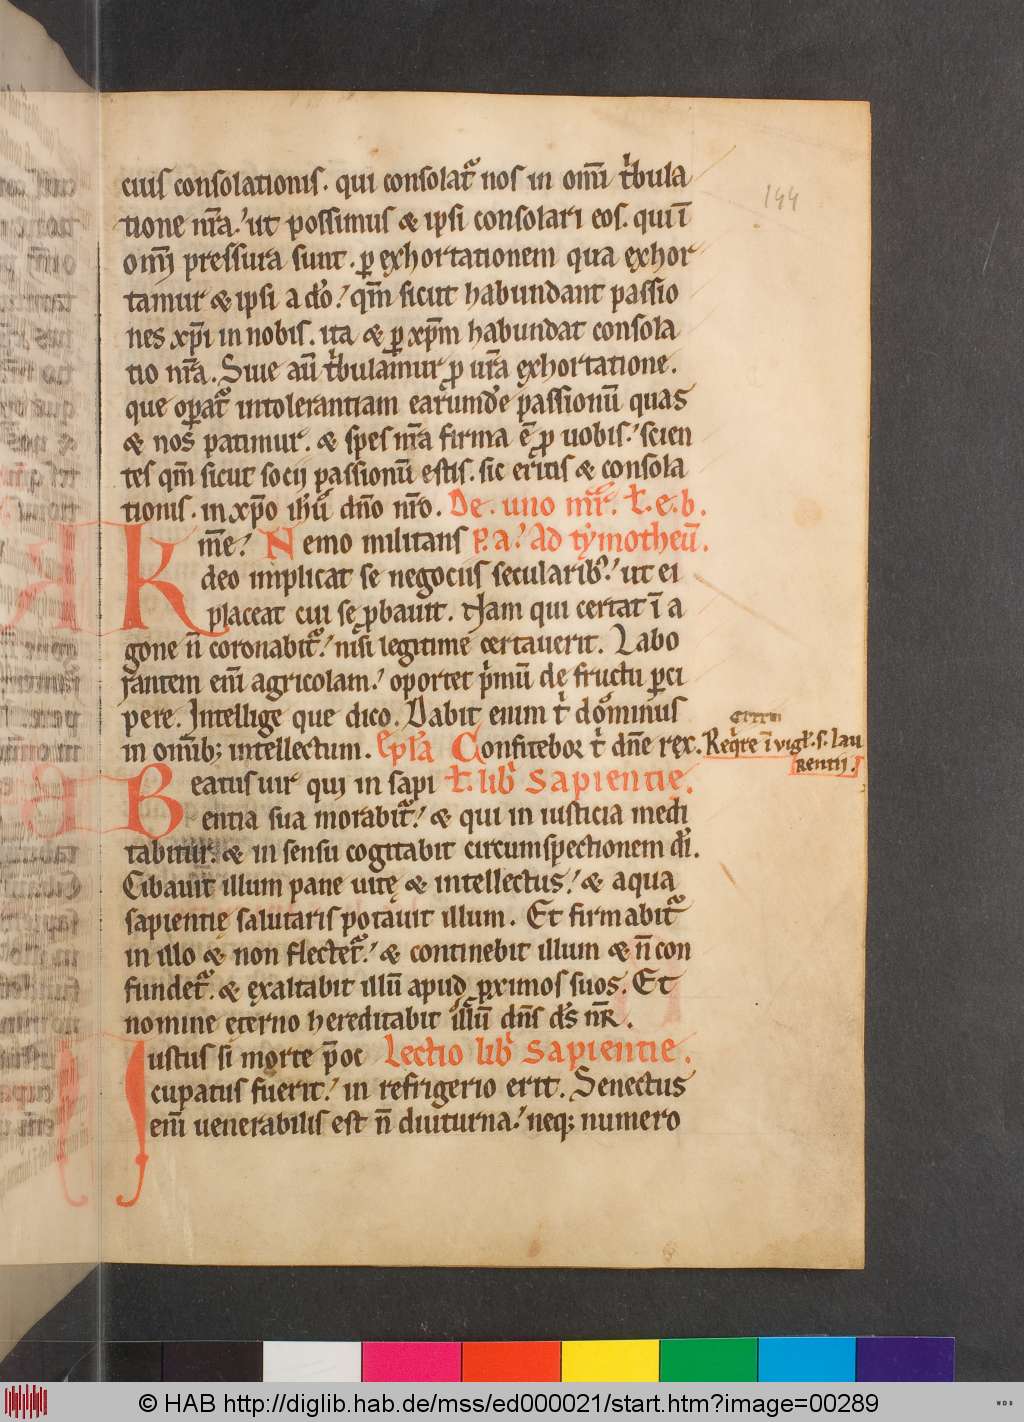 144
cuius consolationis. qui consolat᷑ nos in om̅i t̍bula
tione nr̅a.' ut possimus & ipsi consolari eos. qui ī
om̅i pressura sunt. ꝑ exhortationem qua exhor
tamur & ipsi a dō.' qm̅ sicut habundant passio
nes xp̅i in nobis. ita & ꝑ xp̅m habundat consola
tio nr̅a. Siue au̅ t̍bulamur ꝓ ur̅a exhortatione.
que oꝑat᷑ in tolerantiam earumdē passionū quas
& nos patimur. & spes nr̅a firma ē ꝓ uobis.' scien
tes qm̅ sicut socij passionū estis. sic eritis & consola
tionis. in xp̅o ih̅u dn̅o nr̅o. De. uno mr̅. t̵. e. b.
K
m̅e.' Nemo militans P. a.' Ad tẏmotheū.
deo implicat se negociis secularib᷒.' ut ei
placeat cui se ꝓbauit. Nam qui certat ī a
gone n̅ coronabit᷑.' nisi legitime certauerit. Labo
rantem eni̅ agricolam.' oportet p̍mū de fructu ꝑci
pere. Intellige que dico. Dabit enim t̍ dominus
in omīb; intellectum. epsa Confitebor t̍ dn̅e rex. Req̍re ī vigł. s. lau
rentij.
Beatus uir qui in sapi t̵. lib̍ Sapientie.
entia sua morabit᷑.' & qui in iusticia medi
tabitur. & in sensu cogitabit circumspectionem di̅.
Cibauit illum pane uitę & intellectus.' & aqua
sapientię salutaris potauit illum. Et firmabit᷑
in illo & non flectet᷑.' & continebit illum & n̅ con
fundet᷑. & exaltabit illū apud ꝓximos suos. Et
nomine eterno hereditabit illū dn̅s ds̅ nr̅.
Iustus si morte p̅oc Lectio lib̍ Sapientie.
cupatus fuerit.' in refrigerio erit. Senectus
eni̅ uenerabilis est n̅ diuturna.' neq; numero
© HAB http://diglib.hab.de/mss/ed000021/start.htm?image=00289